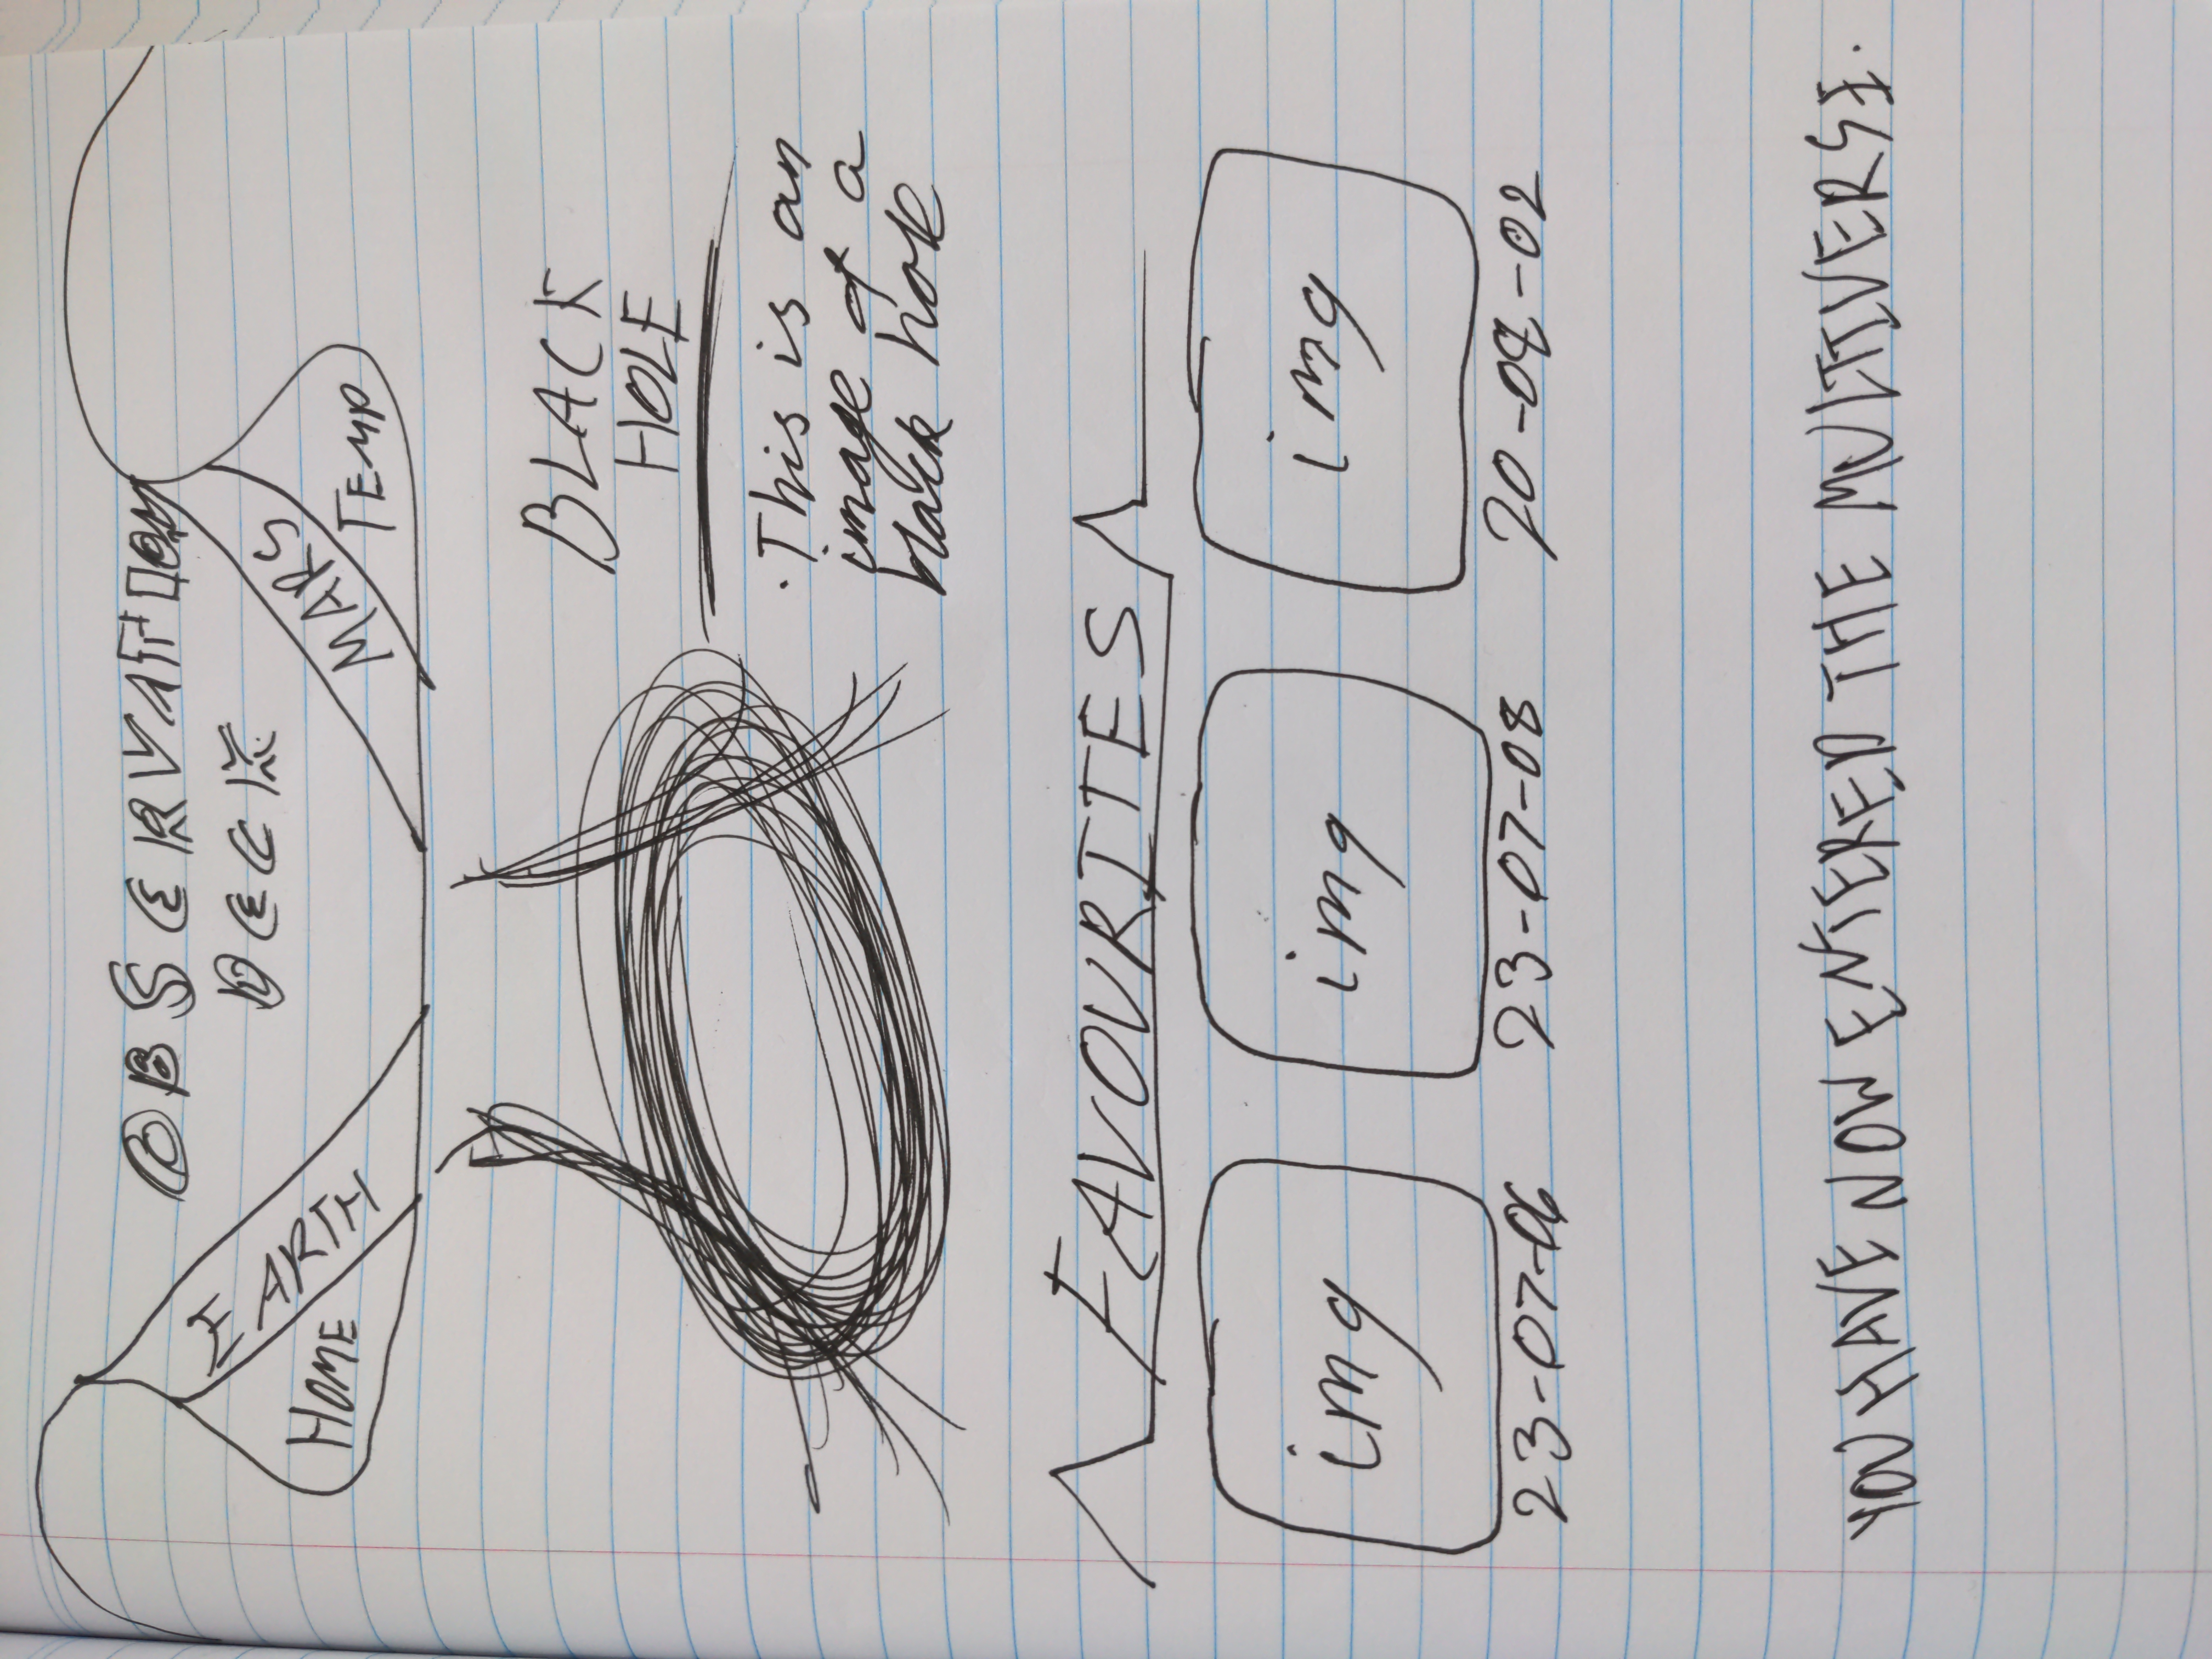 OBSERVATION
DECK
HOME
EARTH
MARS
TEMP
BLACK
HOLE
·This is an
image of a
black hole
FAVOURITES
img
img
img
23-07-06
23-07-08
20-08-02
YOU HAVE NOW ENTERED THE MULTIVERSE.